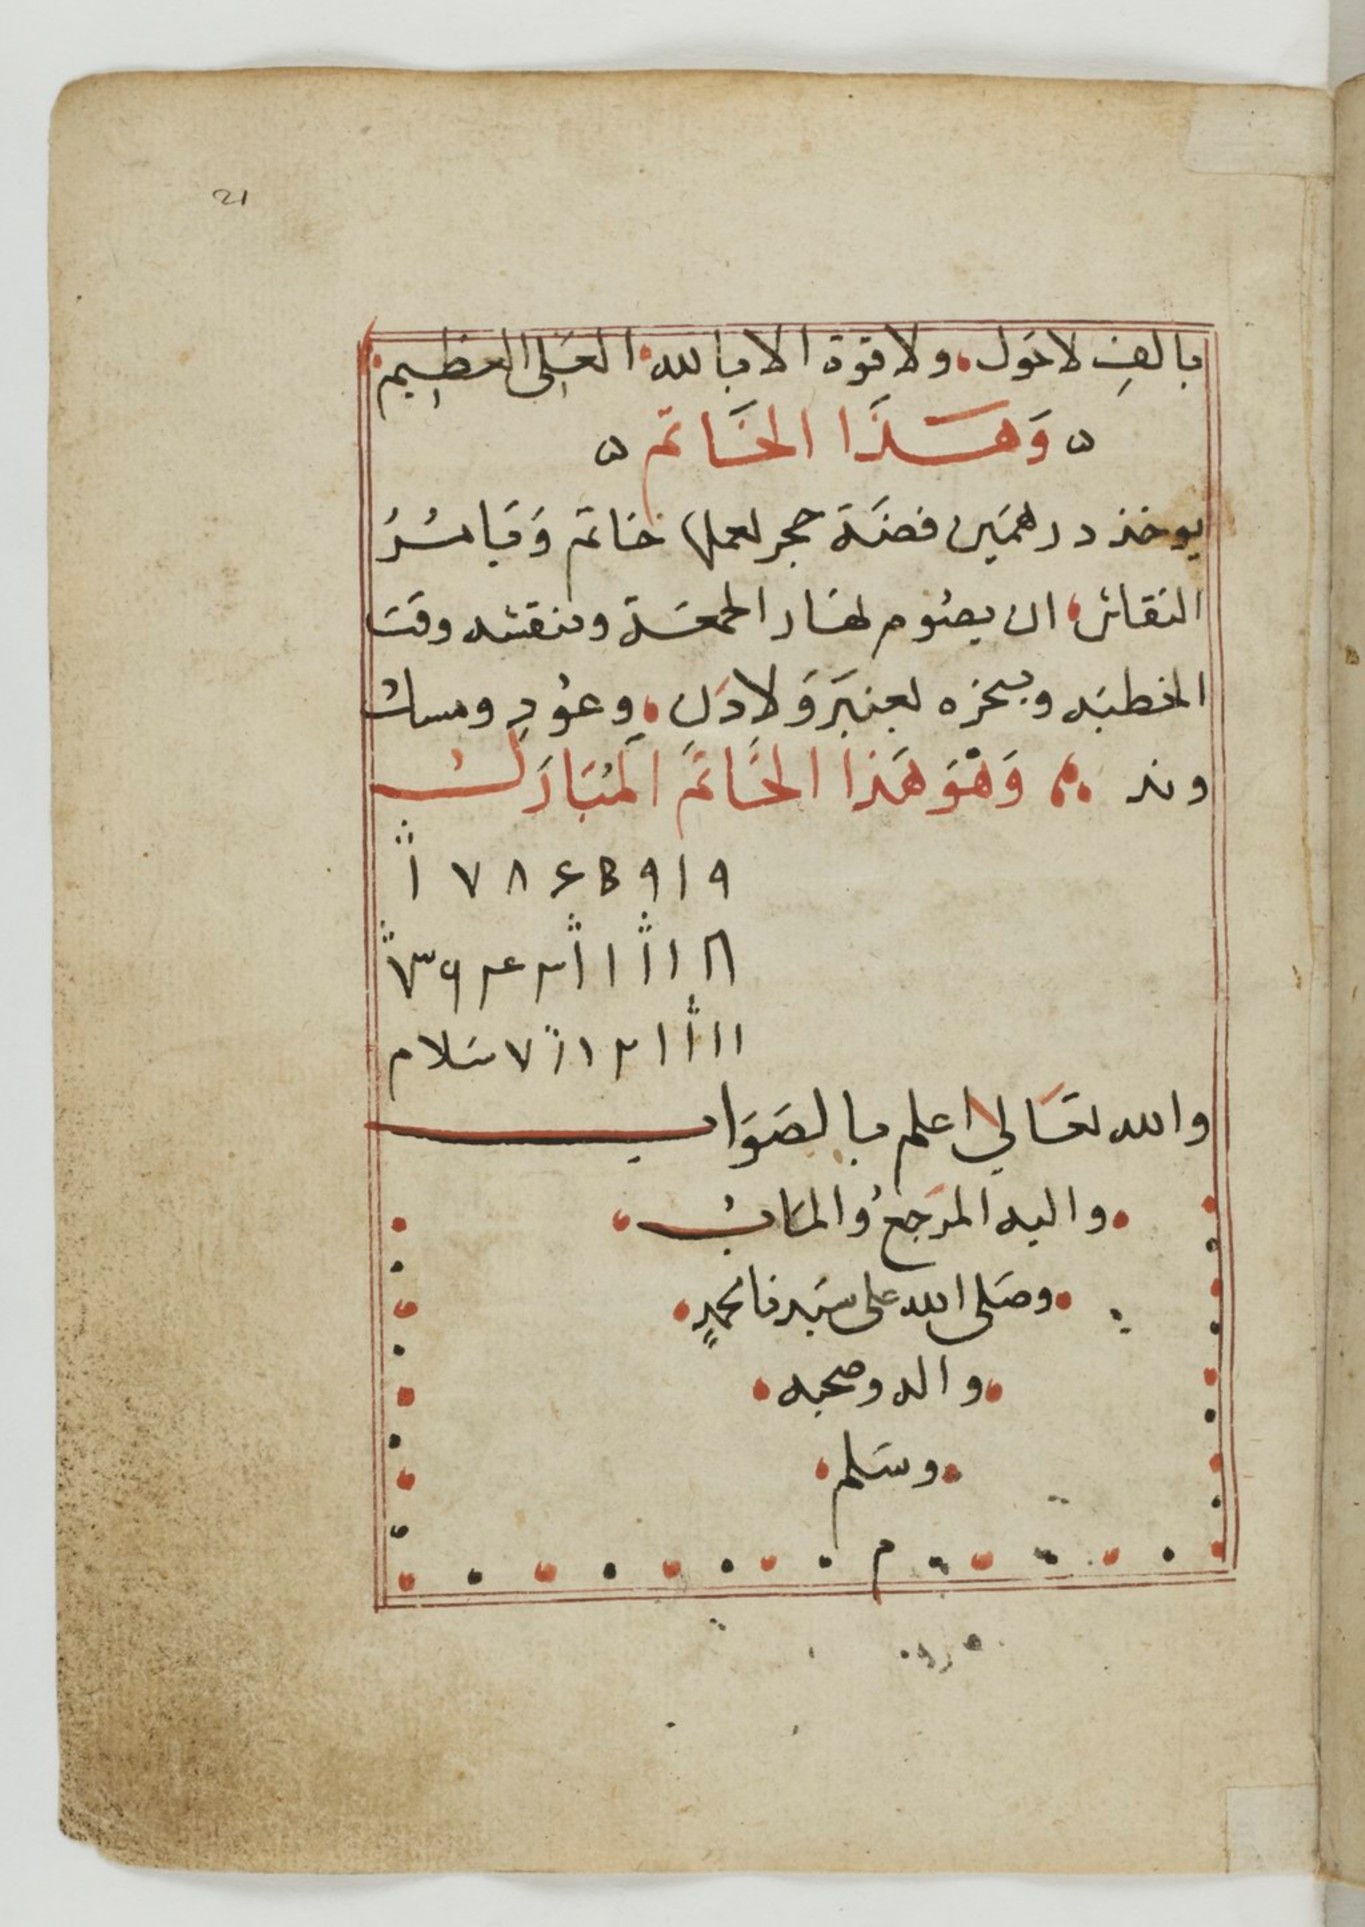 21
بالف لا حَول ولا قوة الا بالله العَلى العظيم
وَهَذَا الخَاتم
يوخذ درهمَين فضَة حجر لعملها خاتم وَيَامُرُ
النقاش ان يصُوم نهَار الجمعَة وينقشه وقت
الخطبَه ويبخره بعنبَر وَلادَن وعُودٍ ومسك
وند وَهْوَ هَذَا الخَاتَم المُبَارَك
٩ ١ ٩ B ۶ ٨ ٧ أ
سَلام
والله تعَالى اعلم بالصَوَاب
واليه المرَجعُ والمَابُ
وصَلى الله على سَيدنا محمدٍ
واله وصحبه
وسَلم
م